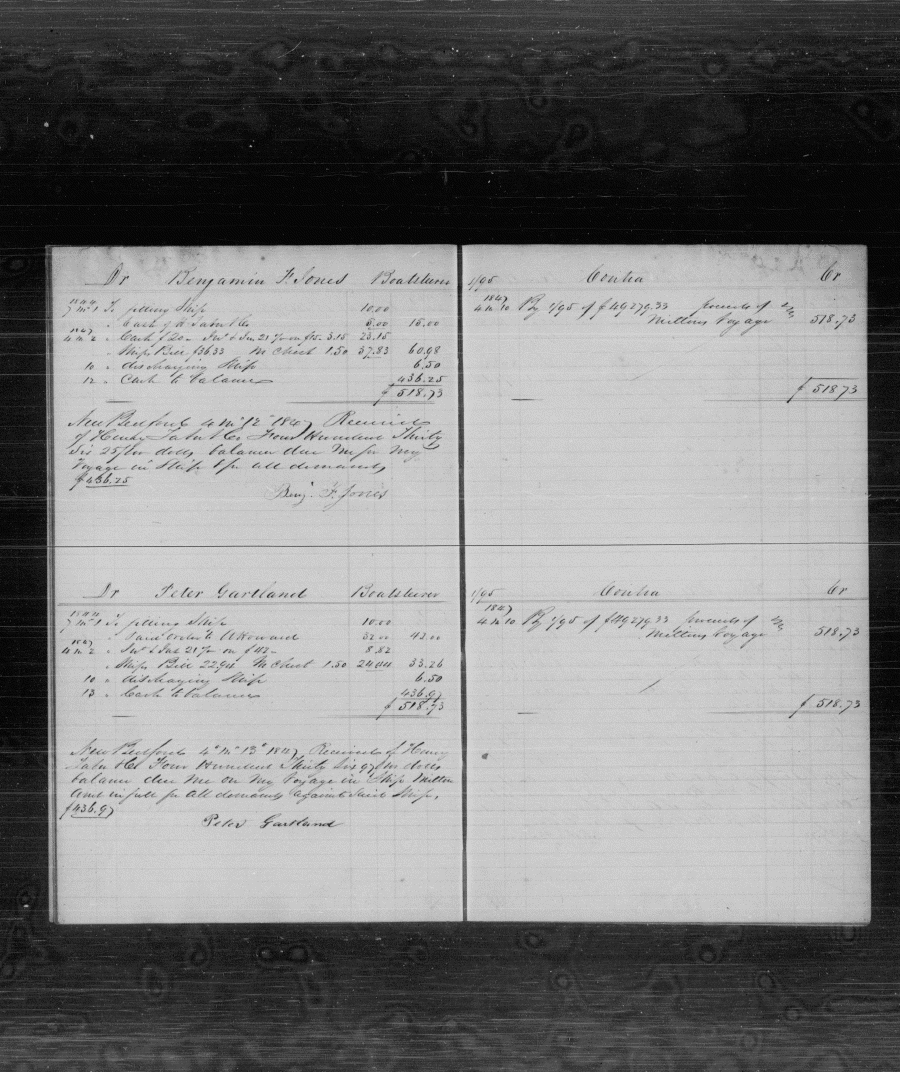 Dr Benjamin F. Jones Boatsteerer
1844
7 mo 1 To fitting Ship 10.00
" Cash of H Taber & Co 5.00 15.00
1847
4 mo 2 " Cash $20 - Int & Ins 21 % on $15 3.15 23.15
" Ships Bill $36.33 M Chest 1.50 37.83 60.98
10 " discharging Ship 6.50
12 " Cash to balance 436.25
$ 518.73
New Bedford 4 mo 12 1847 Received
of Henry Taber & Co Four Hundred Thirty
Six 25/100 dolls balance due me for my
Voyage in Ship & for all demands
$436.25
Benj. F. Jones
1/95 Contra Cr
1847
4 mo 10 By 1/95 of $49279.33 proceeds of
Miltons Voyage 518.73
$ 518.73
Dr Peter Gartland Boatsteerer
1844
7 mo 1 To fitting Ship 10.00
" paid order to A Howard 32.00 42.00
1847
4 mo 2 " Int & Ins 21 % on $42 - 8.82
" Ships Bill 22.94 M Chest 1.50 24.44 33.26
10 " discharging Ship 6.50
13 " Cash to balance 436.97
$ 518.73
New Bedford 4 mo 13 1847 Received of Henry
Taber & Co Four Hundred Thirty Six 97/100 dolls
balance due me on my Voyage in Ship Milton
and in full for all demands against said Ship,
$436.97
Peter Gartland
1/95 Contra Cr
1847
4 mo 10 By 1/95 of $49279.33 proceeds of
Miltons Voyage 518.73
$ 518.73